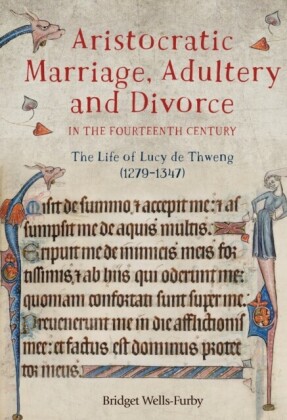 Aristocratic
Marriage, Adultery
and Divorce
IN THE FOURTEENTH CENTURY
The Life of Lucy de Thweng
(1279–1347)
Misit de summo & accepit me: & as
sumpsit me de aquis multis.
Eripuit me de inimicis meis for
tissimis, & ab hiis qui oderunt me:
quoniam confortati sunt super me.
Prevenerunt me in die afflictionis
mee: et factus est dominus protec
tor meus.
Bridget Wells-Furby